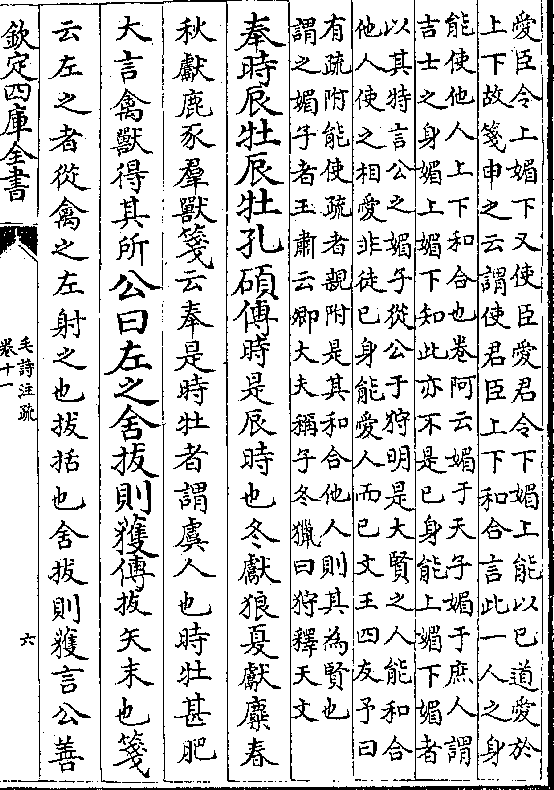 愛臣令上媚下又使臣愛君令下媚上能以已道愛於
上下故箋申之云謂使君臣上下和合言此一人之身
能使他人上下和合也卷阿云媚于天子媚于庶人謂
吉士之身媚上媚下知此亦不是已身能上媚下媚者
以其特言公之媚子從公于狩明是大賢之人能和合
他人使之相愛非徒已身能愛人而已文王四友予曰
有疏附能使疏者親附是其和合他人則其為賢也
謂之媚子者王肅云卿大夫稱子冬獵曰狩釋天文
奉時辰牡辰牡孔碩傳時是辰時也冬獻狼夏獻麋春
秋獻鹿豕羣獸箋云奉是時牡者謂虞人也時牡甚肥
大言禽獸得其所公曰左之舍拔則獲傳拔矢末也箋
云左之者從禽之左射之也拔括也舍拔則獲言公善
欽定四庫全書
毛詩注疏
卷十一
六